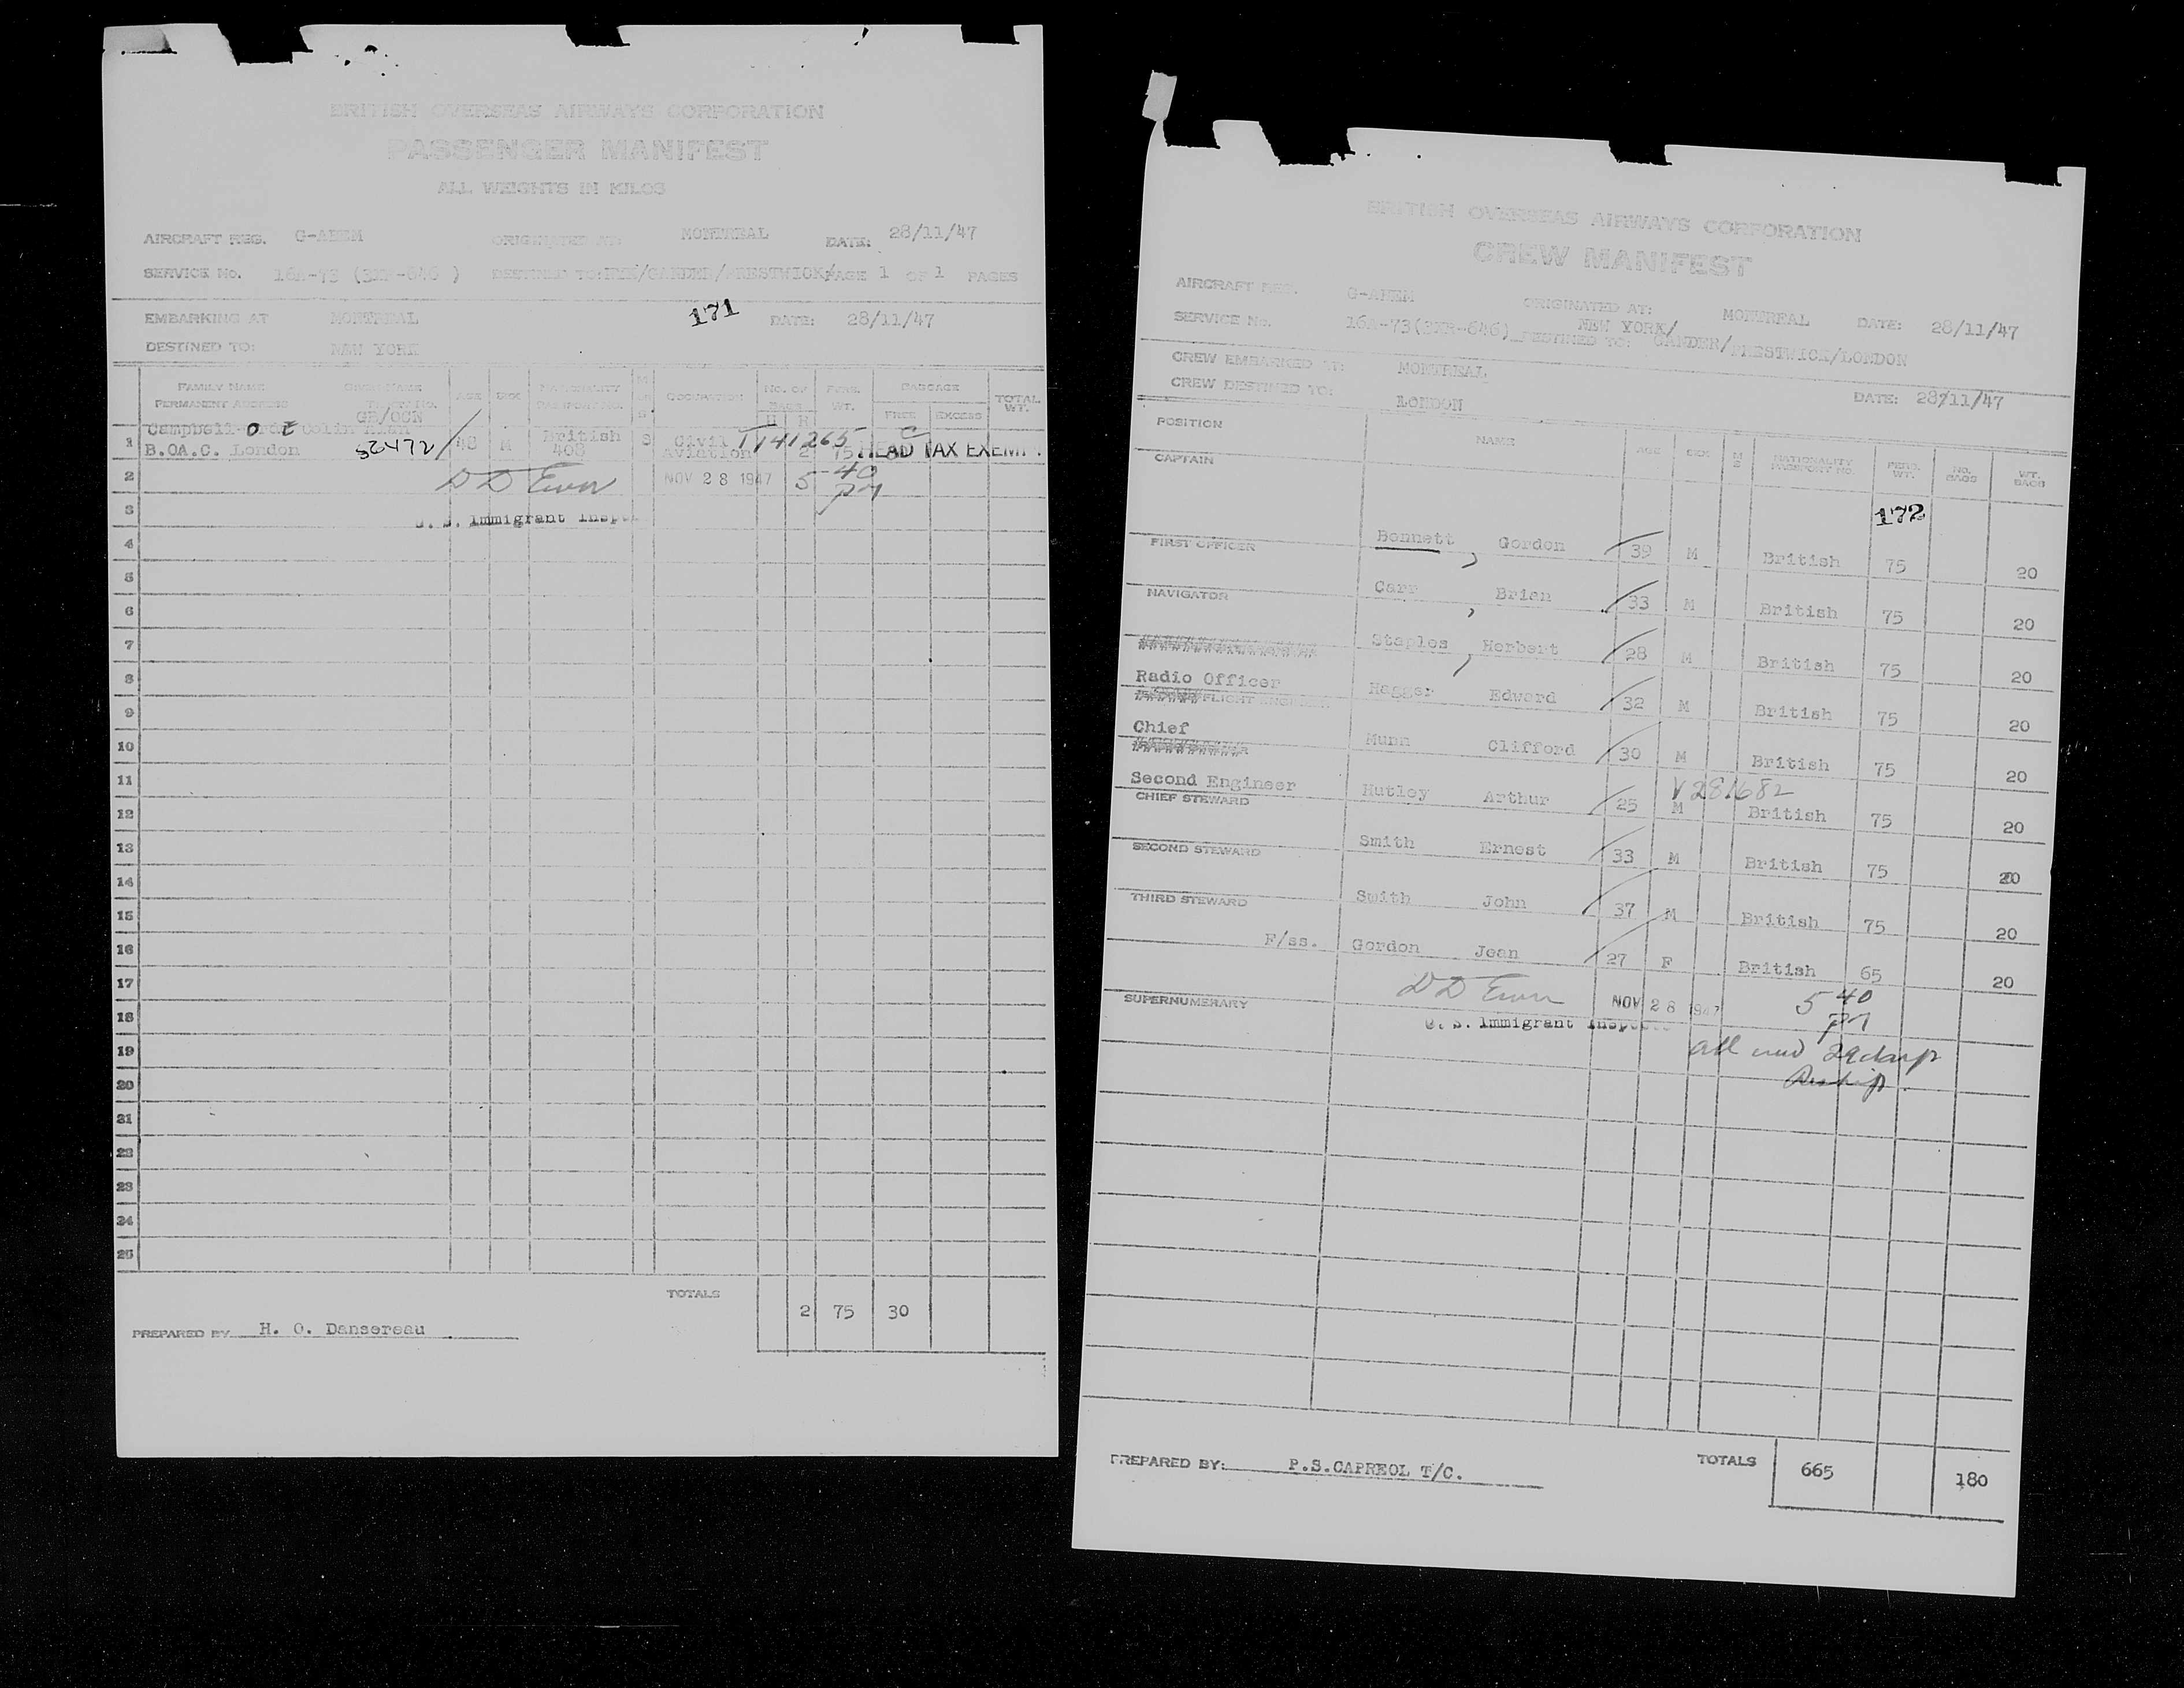 BRITISH OVERSEAS AIRWAYS CORPORATION
PASSENGER MANIFEST
ALL WEIGHTS IN KILOS
AIRCRAFT REG. G-AHEM ORIGINATED AT: MONTREAL DATE: 28/11/47
SERVICE No. 16A-73 ( -646 ) DESTINED TO: /GANDER/PRESTWICK/ PAGE 1 OF 1 PAGES
EMBARKING AT MONTREAL 171 DATE: 28/11/47
DESTINED TO: NEW YORK
FAMILY NAME GIVEN NAME AGE SEX NATIONALITY OCCUPATION NO. OF PERS. BAGGAGE TOTAL
PERMANENT ADDRESS TICKET NO. PASSPORT NO. BAGS WT. FREE EXCESS WT.
GB/OCN
1 Campbell Colin 48 M British S Civil
B.OA.C. London 56472 408 Aviation 2 75 HEAD TAX EXEMPT.
2 NOV 28 1947 5 40
PM
3 U. S. Immigrant Inspe
4
5
6
7
8
9
10
11
12
13
14
15
16
17
18
19
20
21
22
23
24
25
TOTALS 2 75 30
PREPARED BY H. O. Dansereau
BRITISH OVERSEAS AIRWAYS CORPORATION
CREW MANIFEST
AIRCRAFT REG. G-AHEM ORIGINATED AT: MONTREAL DATE: 28/11/47
SERVICE No. 16A-73( -646) DESTINED TO: NEW YORK/ GANDER/PRESTWICK/LONDON
CREW EMBARKED AT: MONTREAL
CREW DESTINED TO: LONDON DATE: 28/11/47
POSITION NAME AGE SEX M S NATIONALITY PASSPORT NO. PERS. WT. NO. BAGS WT. BAGS
CAPTAIN
172
Bennett, Gordon 39 M British 75 20
FIRST OFFICER
Carr, Brian 33 M British 75 20
NAVIGATOR
Staples, Herbert 28 M British 75 20
Radio Officer Hagger Edward 32 M British 75 20
FLIGHT ENGINEER
Chief Munn Clifford 30 M British 75 20
V281682
Second Engineer Hutley Arthur 25 M British 75 20
CHIEF STEWARD
Smith Ernest 33 M British 75 20
SECOND STEWARD
Smith John 37 M British 75 20
THIRD STEWARD
F/ss. Gordon Jean 27 F British 65 20
NOV 28 1947 5 40
PM
SUPERNUMERARY
U. S. Immigrant Inspe
PREPARED BY: P.S.CAPREOL T/C. TOTALS 665 180